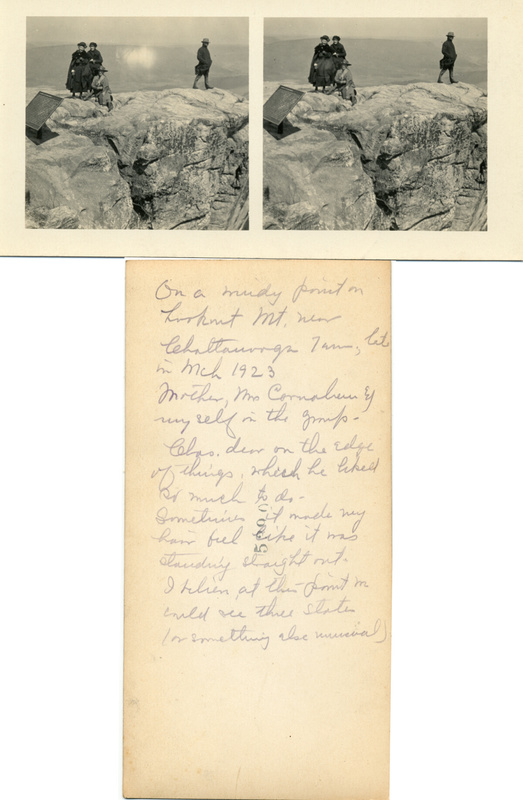 On a windy point on
Lookout Mt, near
Chattanooga Tenn, late
in Mch 1923
Mother, Mrs &
myself in the group -
Chas. dear on the edge
of things, which he liked
so much to do -
Sometimes it made my
hair feel like it was
standing straight out.
I believe at this point we
could see three states
(or something else unusual)